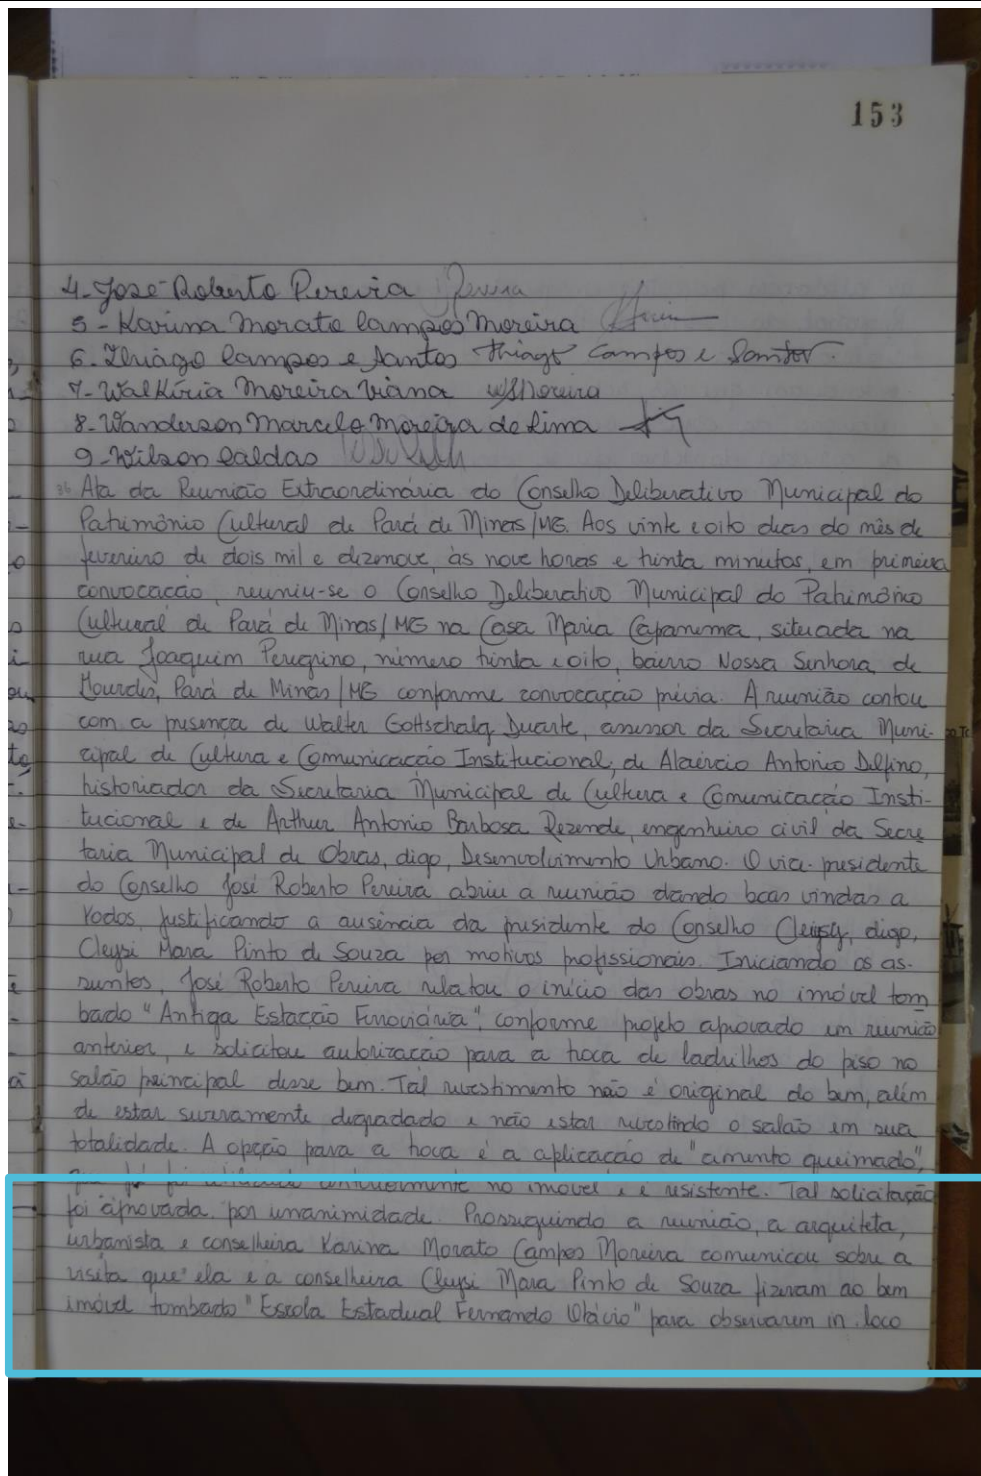 153
4-José Roberto Pereira Pereira
5-Karina Morato Campos Moreira
6-Thiago Campos e Santos Thiago Campos e Santos.
7-Walkíria Moreira Viana WSMoreira
8-Wanderson Marcelo Moreira de Lima
9-Wilson Caldas
Ata da Reunião Extraordinária do Conselho Deliberativo Municipal do
Patrimônio Cultural de Pará de Minas/MG. Aos vinte e oito dias do mês de
fevereiro de dois mil e dezenove, às nove horas e trinta minutos, em primeira
convocação, reuniu-se o Conselho Deliberativo Municipal do Patrimônio
Cultural de Pará de Minas/MG na Casa Maria Capanema, situada na
rua Joaquim Peregrino, número trinta e oito, bairro Nossa Senhora de
Lourdes, Pará de Minas/MG conforme convocação prévia. A reunião contou
com a presença de Walter Gottschalg Duarte, assessor da Secretaria Muni-
cipal de Cultura e Comunicação Institucional, de Alaércio Antonio Delfino,
historiador da Secretaria Municipal de Cultura e Comunicação Insti-
tucional e de Arthur Antonio Barbosa Rezende, engenheiro civil da Secre
taria Municipal de Obras, digo, Desenvolvimento Urbano. O vice-presidente
do Conselho José Roberto Pereira abriu a reunião dando boas vindas a
todos, justificando a ausência da presidente do Conselho Cleysy, digo,
Cleysi Mara Pinto de Souza por motivos profissionais. Iniciando os as-
suntos, José Roberto Pereira relatou o início das obras no imóvel tom
bado "Antiga Estação Ferroviária", conforme projeto aprovado em reunião
anterior, e solicitou autorização para a troca de ladrilhos do piso no
salão principal desse bem. Tal revestimento não é original do bem, além
de estar severamente degradado e não estar revestindo o salão em sua
totalidade. A opção para a troca é a aplicação de "cimento queimado",
que já foi utilizado anteriormente no imóvel e é resistente. Tal solicitação
foi aprovada por unanimidade. Prosseguindo a reunião, a arquiteta,
urbanista e conselheira Karina Morato Campos Moreira comunicou sobre a
visita que ela e a conselheira Cleysi Mara Pinto de Souza fizeram ao bem
imóvel tombado "Escola Estadual Fernando Otávio" para observarem in loco